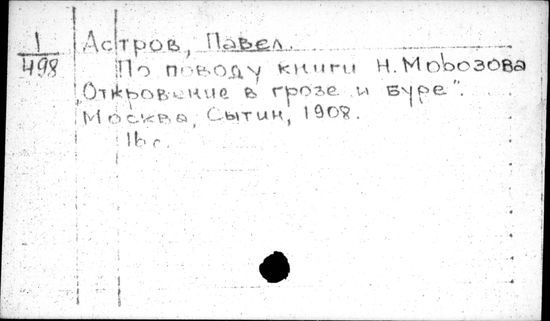 1
498
Астров, Павел.
По поводу книги Н. Морозова
„Откровение в грозе и буре".
Москва, Сытин, 1908.
16 с.